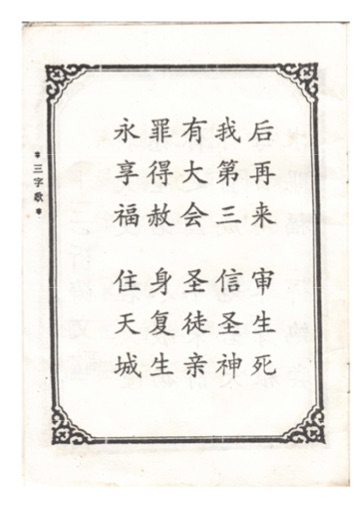 后再来 审生死
我第三 信圣神
有大会 圣徒亲
罪得赦 身复生
永享福 住天城
*三字歌*